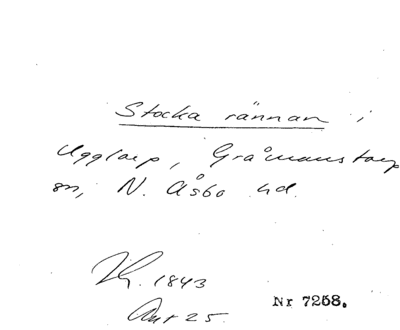 Stocka rännan i
Ugglarp, Gråmanstorp
sn, N. Åsbo hd.
1843
25.
Nr 7258.